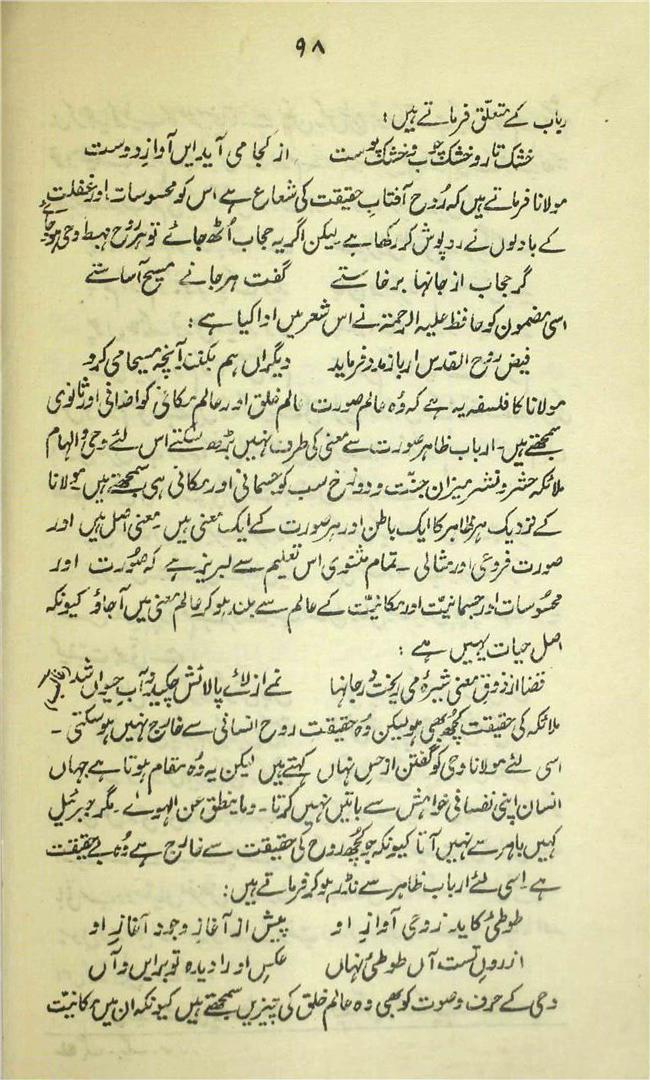 ۹۸
رباب کے متعلق فرماتے ہیں:
خشک تار و خشک چوب و خشک پوست از کجا می آید ایں آوازِ دوست
مولانا فرماتے ہیں کہ رُوح آفتابِ حقیقت کی شعاع ہے اس کو محسوسات اور غفلت
کے بادلوں نے روپوش کر رکھا ہے لیکن اگر یہ حجاب اُٹھ جائے تو ہر روح مہبطِ وحی ہو جائے
گر حجاب از جانہا بر خاستے گفت ہر جانے مسیح آساستے
اسی مضمون کو حافظ علیہ الرحمۃ نے اس شعر میں ادا کیا ہے:
فیض روح القدس ار باز مدد فرماید دیگراں ہم بکنند آنچہ مسیحا می کرد
مولانا کا فلسفہ یہ ہے کہ وُہ عالم صورت عالم خلق اور عالم مکانی کو اضافی اور ثانوی
سمجھتے ہیں۔ ارباب ظاہر صورت سے معنی کی طرف نہیں بڑھ سکتے اس لئے وحی و الہام
ملائکہ حشر و نشر میزان جنّت و دوزخ سب کو جسمانی اور مکانی ہی سمجھتے ہیں۔ مولانا
کے نزدیک ہر ظاہر کا ایک باطن اور ہر صورت کے ایک معنی ہیں۔ معنی اصل ہیں اور
صورت فروعی اور مثالی۔ تمام مثنوی اس تعلیم سے لبریز ہے کہ صُورت اور
محسُوسات اور جسمانیّت اور مکانیّت کے عالم سے بلند ہو کر عالم معنی میں آ جاؤ کیونکہ
اصل حیات یہیں ہے:
قضا از ذوق معنی شیرۂ می ریخت در جانہا نمے از لائے پالائش چکید و آبِ حیواں شد (غالب)
ملائکہ کی حقیقت کچُھ بھی ہو لیکن وُہ حقیقت روح انسانی سے خارج نہیں ہو سکتی۔
اسی لئے مولانا وحی کو گفتن از حس نہاں کہتے ہیں لیکن یہ وُہ مقام ہوتا ہے جہاں
انسان اپنی نفسانی خواہش سے باتیں نہیں کرتا۔ وما ینطق عن الہوےٰ۔ مگر جبرئیل
کہیں باہر سے نہیں آتا کیونکہ جو کچُھ روح کی حقیقت سے خارج ہے وُہ بے حقیقت
ہے۔ اسی لئے ارباب ظاہر سے نڈر ہو کر فرماتے ہیں:
طوطئ کاید ز وحی آوازِ او پیش از آغازِ وجود آغازِ او
اندرونِ تست آں طوطئ نہاں عکسِ او را دیدہ تو بر این و آں
وحی کے حرف و صوت کو بھی وہ عالم خلق کی چیزیں سمجھتے ہیں کیونکہ ان میں مکانیّت